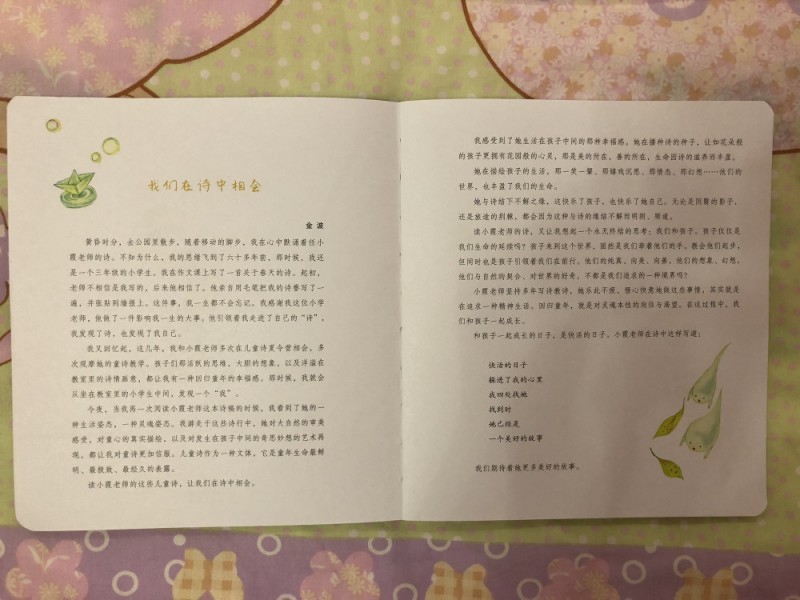 我们在诗中相会
金波
黄昏时分，去公园里散步，随着移动的脚步，我在心中默诵着任小
霞老师的诗。不知为什么，我的思绪飞到了六十多年前，那时候，我还
是一个三年级的小学生，我在作文课上写了一首关于春天的诗。起初，
老师不相信是我写的，后来他相信了。他亲自用毛笔把我的诗誊写了一
遍，并张贴到墙报上。这件事，我一生都不会忘记。我感谢我这位小学
老师，他做了一件影响我一生的大事。他引领着我走进了自己的“诗”，
我发现了诗，也发现了我自己。
我又回忆起，这几年，我和小霞老师多次在儿童诗夏令营相会，多
次观摩她的童诗教学。孩子们那活跃的思维、大胆的想象，以及洋溢在
教室里的诗情画意，都让我有一种回归童年的幸福感。那时候，我就会
从坐在教室里的小学生中间，发现一个“我”。
今夜，当我再一次阅读小霞老师这本诗稿的时候，我看到了她的一
种生活姿态，一种灵魂姿态。我游走于这些诗行中，她对大自然的审美
感受，对童心的真实描绘，以及对发生在孩子中间的奇思妙想的艺术再
现，都让我对童诗更加信服。儿童诗作为一种文体，它是童年生命最鲜
明、最极致、最经久的表露。
读小霞老师的这些儿童诗，让我们在诗中相会。
我感受到了她生活在孩子中间的那种幸福感。她在播种诗的种子，让如花朵般
的孩子更拥有花园般的心灵，那是美的所在，善的所在，生命因诗的滋养而丰盈。
她在描绘孩子的生活，那一笑一颦、那嬉戏沉思、那情态、那幻想……他们的
世界，也丰盈了我们的生命。
她与诗结下不解之缘，这快乐了孩子，也快乐了她自己。无论是阴霾的影子，
还是旅途的荆棘，都会因为这种与诗的缘结不解而明朗、顺遂。
读小霞老师的诗，又让我想起一个永无终结的思考：我们和孩子。孩子仅仅是
我们生命的延续吗？孩子来到这个世界，固然是我们牵着他们的手，教会他们起步，
但同时也是孩子们领着我们在前行。他们的纯真、向美、向善，他们的想象、幻想，
他们与自然的契合、对世界的好奇，不都是我们追求的一种境界吗？
小霞老师坚持多年写诗教诗，她乐此不疲，惬心快意地做这些事情，其实就是
在追求一种精神生活。回归童年，就是对灵魂本性的向往与渴望。在这过程中，我
们和孩子一起成长。
和孩子一起成长的日子，是快活的日子。小霞老师在诗中这样写道：
快活的日子
躲进了我的心里
我四处找她
找到时
她已经是
一个美好的故事
我们期待着她更多美好的故事。